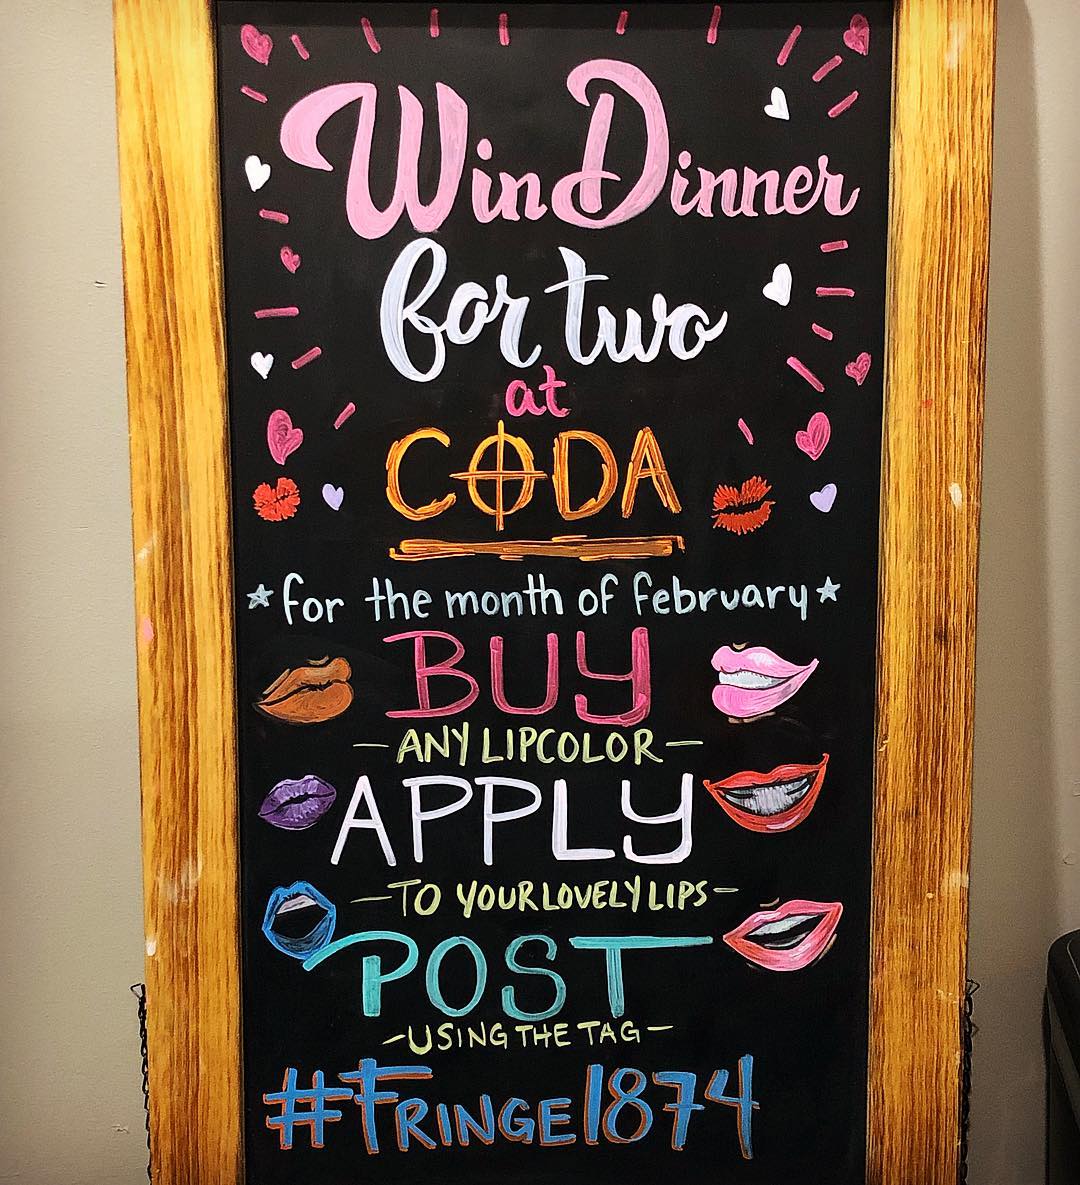 Win Dinner
for two
at
CODA
*for the month of february*
BUY
- ANY LIPCOLOR -
APPLY
- TO YOUR LOVELY LIPS -
POST
- USING THE TAG -
#FRINGE1874